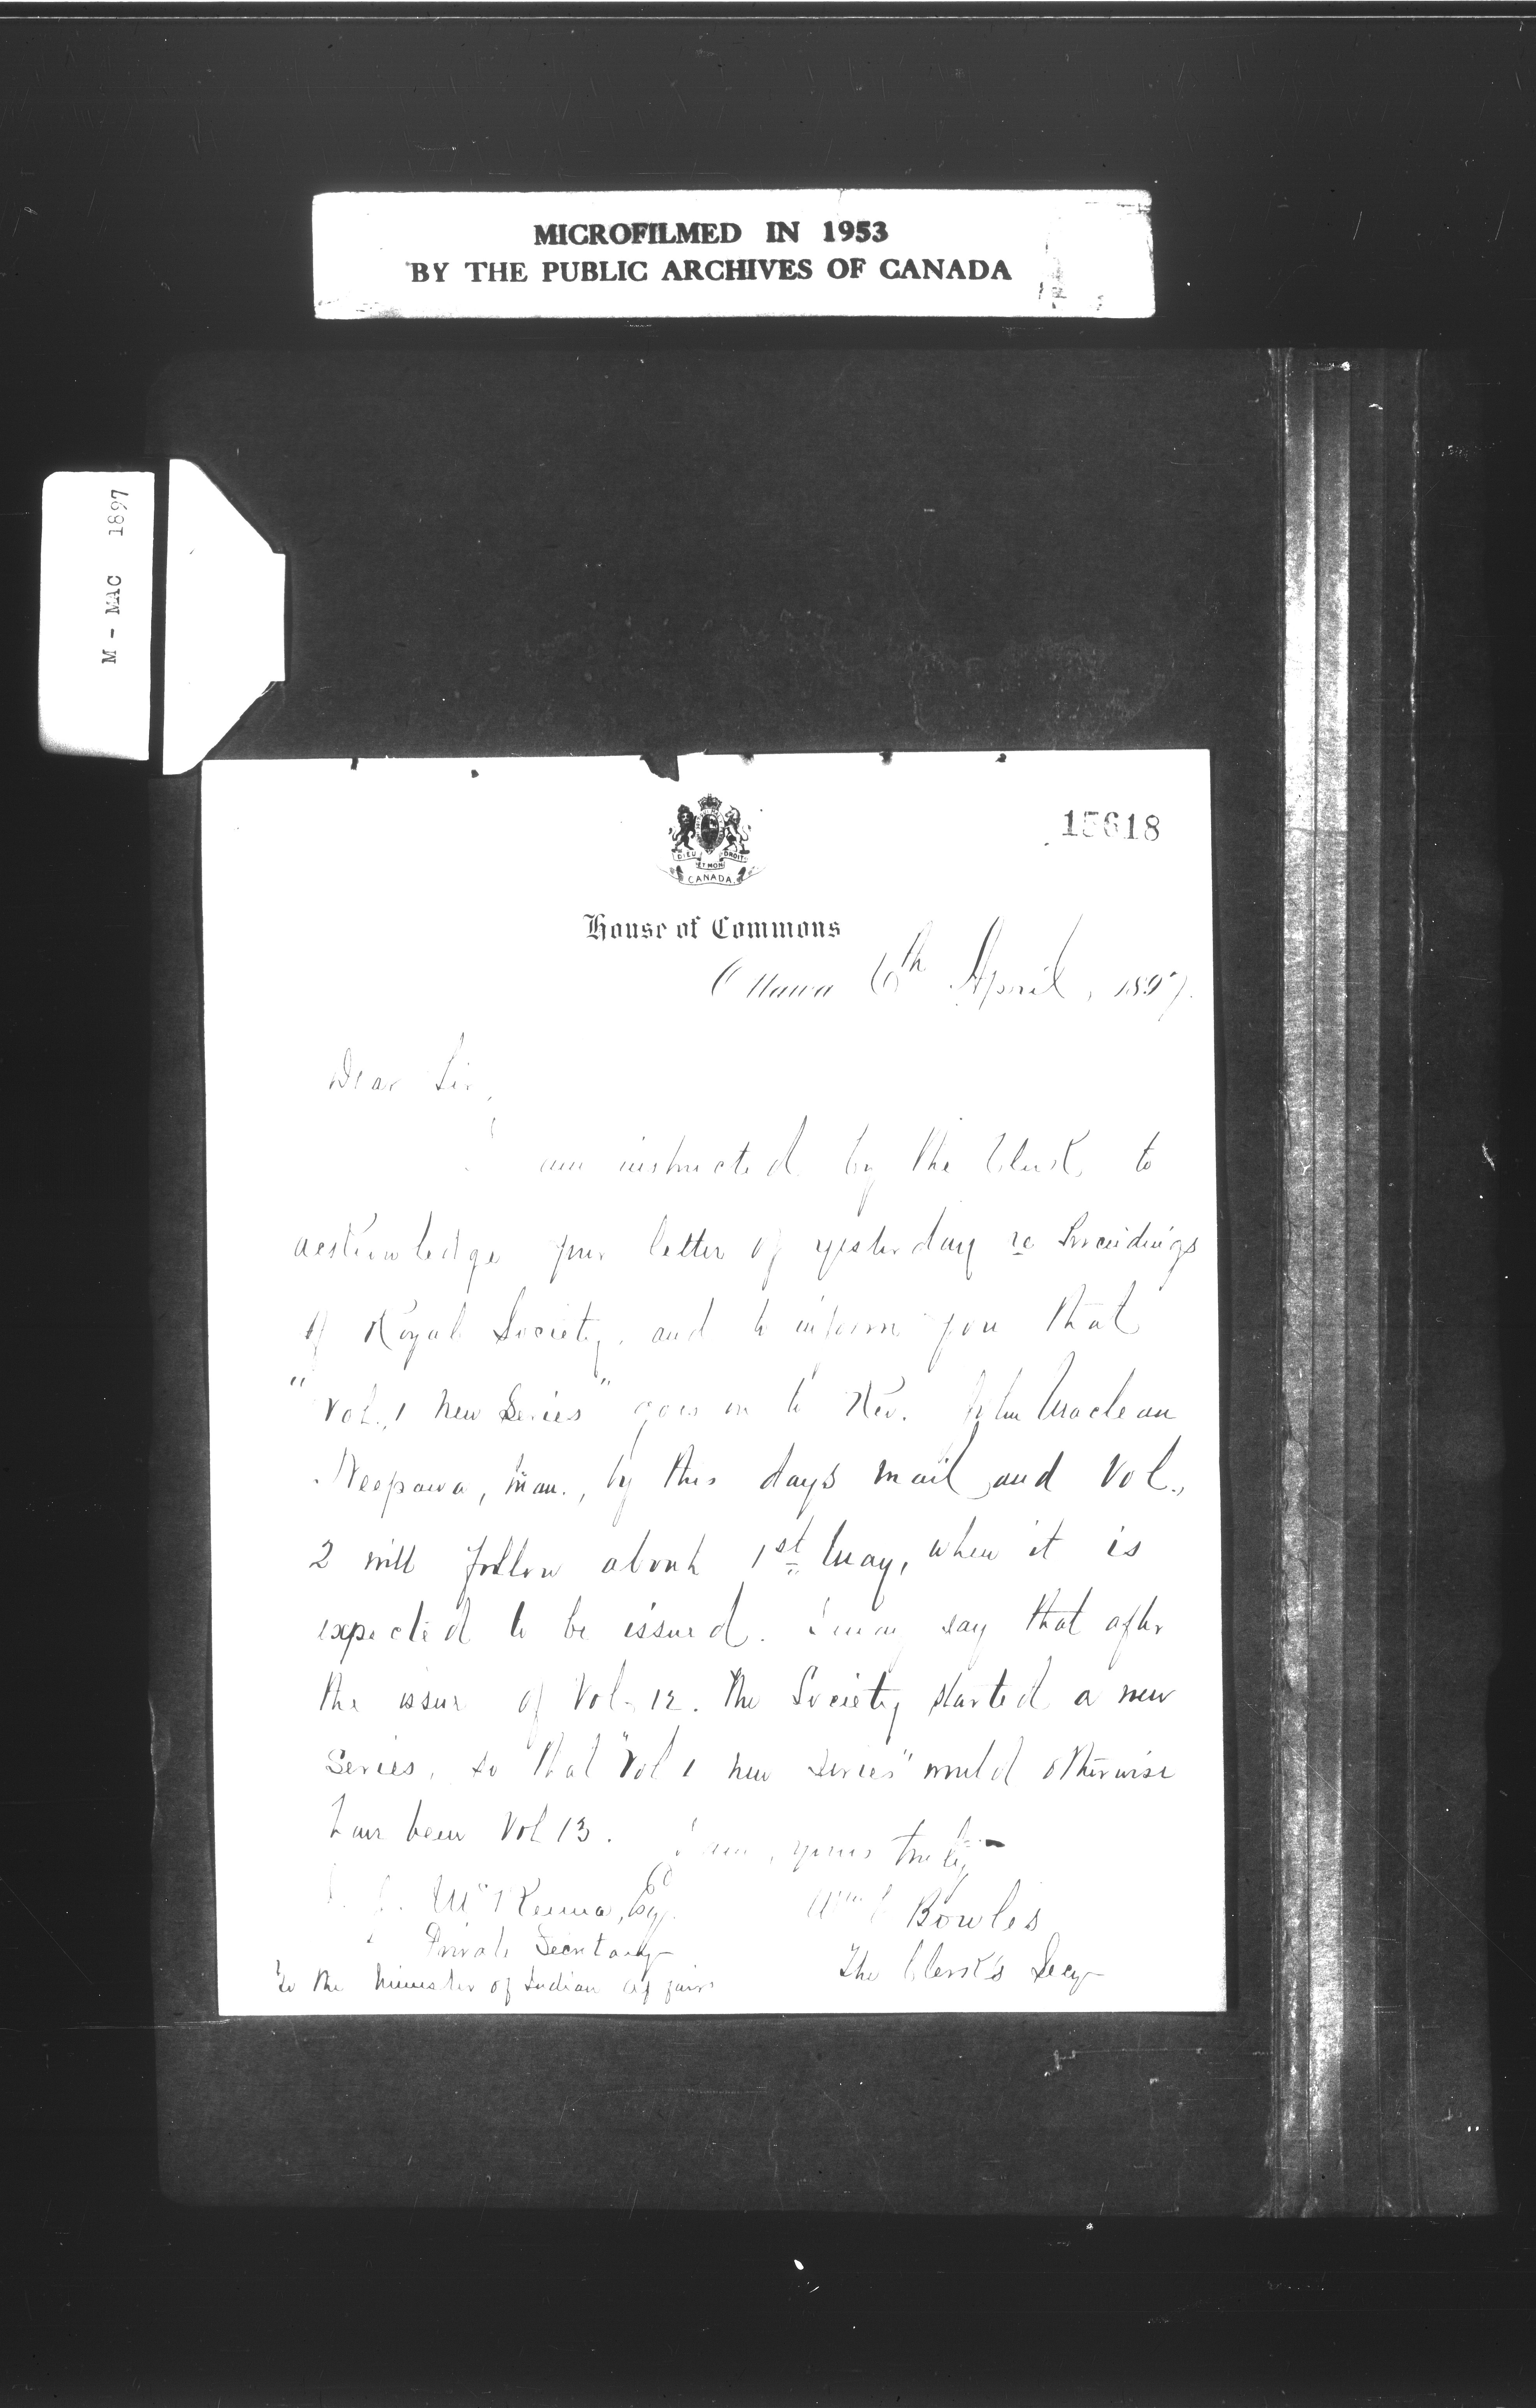 MICROFILMED IN 1953
BY THE PUBLIC ARCHIVES OF CANADA
M - MAC 1897
15618
DIEU ET MON DROIT
CANADA
House of Commons
Ottawa 6th April, 1897.
Dear Sir,
I am instructed by the Clerk to
acknowledge your letter of yesterday re Proceedings
of Royal Society, and to inform you that
"Vol. 1 New Series" goes on to Rev. John Maclean
Neepawa, Man., by this days mail and Vol.,
2 will follow about 1st May, when it is
expected to be issued. I may say that after
the issue of Vol. 12. The Society started a new
Series, so that "Vol 1 new series" would otherwise
have been Vol 13. I am, yours truly
McKenna, Esq. Wm C Bowles
Private Secretary The Clerk's Secy
To the Minister of Indian Affairs